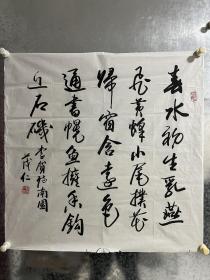 春水初生乳燕
飛黄蜂小尾撲花
歸窗含遠色
通書幌魚擁香鈎
近石磯 李賀詩南園
茂仁